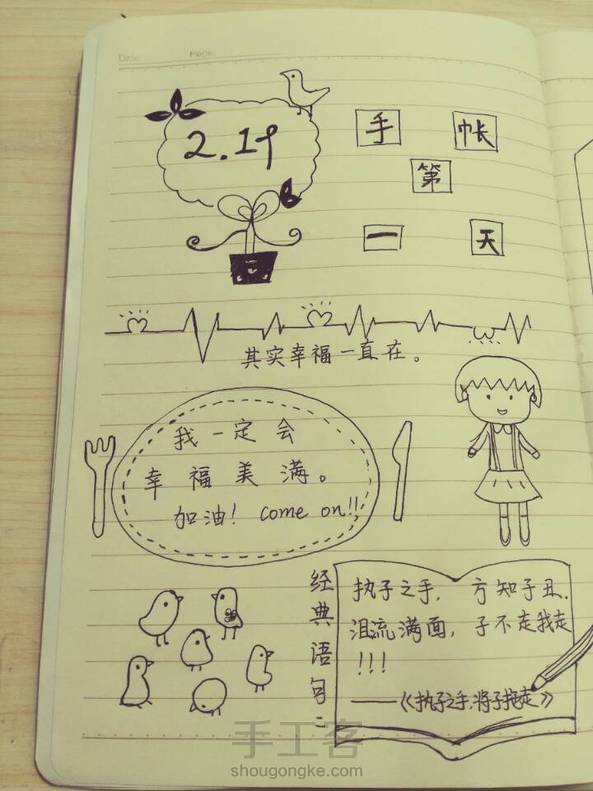 Date
2.19
手帐
第
一天
其实幸福一直在。
我一定会
幸福美满。
加油! come on!!
经典语句:
执子之手, 方知子丑.
泪流满面, 子不走我走
!!!
——《执子之手.将子拖走》
手工客
shougongke.com